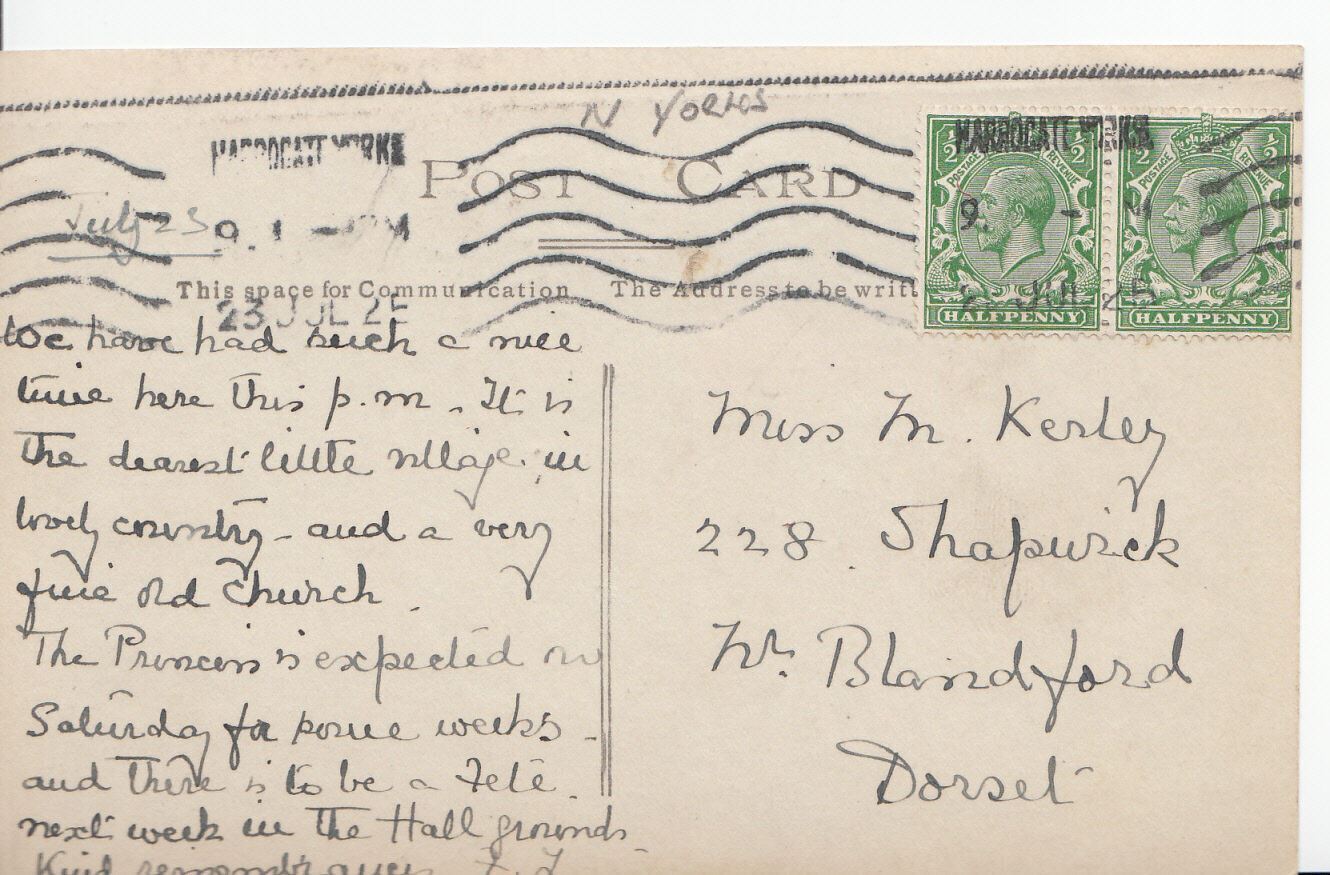 N YORKS
HARROGATE YORKS
HARROGATE YORKS
POST CARD
July 23
23 JUL 25
This space for Communication
The Address to be writt
POSTAGE REVENUE
POSTAGE REVENUE
1/2 1/2
1/2 1/2
HALFPENNY
HALFPENNY
We have had such a nice
time here this p.m. It is
the dearest little village in
lovely country - and a very
fine old church.
The Princess is expected on
Saturday for some weeks -
and there is to be a Fete
next week in the Hall grounds.
Kind remembrances
Miss M. Kerley
228 Shapwick
Nr. Blandford
Dorset